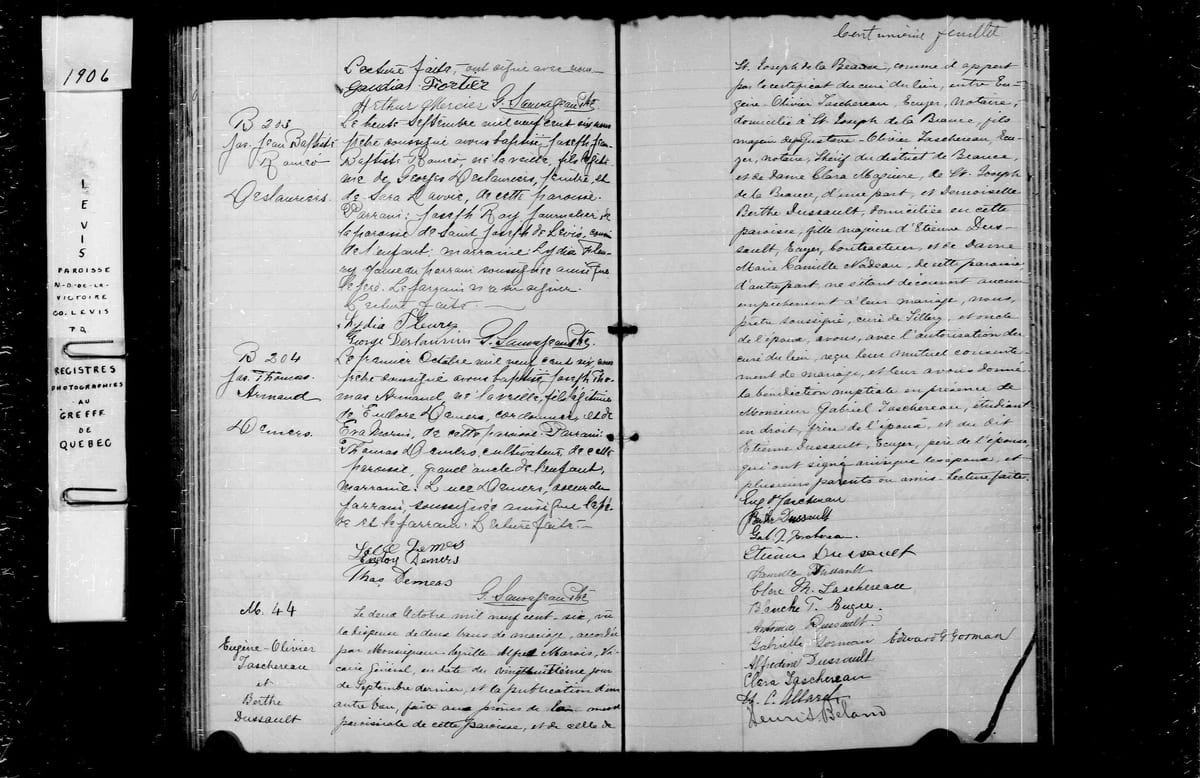 1906
LEVIS
PAROISSE
N-D-DE-LA-
VICTOIRE
CO. LEVIS
P.Q
REGISTRES
PHOTOGRAPHIES
AU
GREFFE
DE
QUEBEC
Lecture faite, ont signé avec nous
Gaudias Fortier
Arthur Mercier G. Sauvageau Ptre
B 203
Jos. Jean Baptiste
Roméo
Deslauriers.
Le trente Septembre mil neuf cent six, nous
prêtre soussigné avons baptisé Joseph Jean
Baptiste Roméo, né la veille, fils légiti-
me de Georges Deslauriers, peintre, et
de Sara Lavoie, de cette paroisse.
Parrain: Joseph Roy journalier de
la paroisse de Saint Joseph de Lévis, cousin
de l'enfant; marraine Lydia Fleu-
ry, femme du parrain soussignée ainsi que
le père. Le parrain n'a su signer.
Lecture faite.
Lydia Fleury
George Deslauriers G. Sauvageau Ptre
B 204
Jos. Thomas
Armand
Demers.
Le premier Octobre mil neuf cent six, nous
prêtre soussigné avons baptisé Joseph Tho-
mas Armand, né la veille, fils légitime
de Eudore Demers, cordonnier, et de
Eva Morin, de cette paroisse. Parrain:
Thomas Demers, cultivateur, de cette
paroisse, grand oncle de l'enfant,
marraine: Luce Demers, soeur du
parrain, soussignée ainsi que le pè-
re et le parrain. Lecture faite.
Demers
Demers
Thos. Demers
G. Sauvageau Ptre
M. 44
Eugène-Olivier
Taschereau
et
Berthe
Dussault
Le deux Octobre mil neuf cent-six, vu
la dispense de deux bans de mariage, accordée
par Monseigneur Cyrille Alfred Marois, Vi-
caire Général, en date du vingt-huitième jour
de Septembre dernier, et la publication d'un
autre ban, faite au prône de la messe
paroissiale de cette paroisse, et de celle de
Cent unième feuillet
St. Joseph de la Beauce, comme il appert
par le certificat du curé du lieu, entre Eu-
gène-Olivier Taschereau, Ecuyer, Notaire,
domicilié à St. Joseph de la Beauce, fils
majeur de Gustave-Olivier Taschereau, Ecu-
yer, notaire, Shérif du district de Beauce,
et de Dame Clara Maguire, de St. Joseph
de la Beauce, d'une part, et Demoiselle
Berthe Dussault, domiciliée en cette
paroisse, fille majeure d'Etienne Dus-
sault, Ecuyer, Contracteur, et de Dame
Marie Camille Nadeau, de cette paroisse,
d'autre part, ne s'étant découvert aucun
empêchement à leur mariage, nous,
prêtre soussigné, curé de Sillery, et oncle
de l'époux, avons, avec l'autorisation du
curé du lieu, reçu leur mutuel consente-
ment de mariage, et leur avons donné
la bénédiction nuptiale en présence de
Monsieur Gabriel Taschereau, étudiant
en droit, frère de l'époux, et du dit
Etienne Dussault, Ecuyer, père de l'épouse,
qui ont signé ainsi que les époux, et
plusieurs parents ou amis. Lecture faite.
Eug O Taschereau
Berthe Dussault
Etienne Dussault
Camille Dussault
Taschereau
Blanche T.
Antonia Dussault.
Gabrielle Gorman Edward G Gorman
Alfredine Dussault
Clara Taschereau
H. C. Allard
Béland